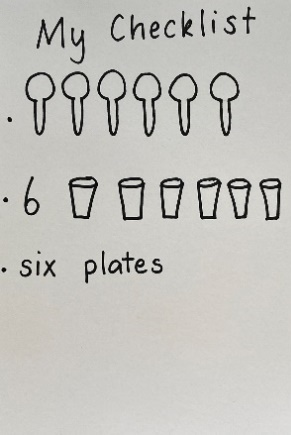 My Checklist
· 6
· six plates